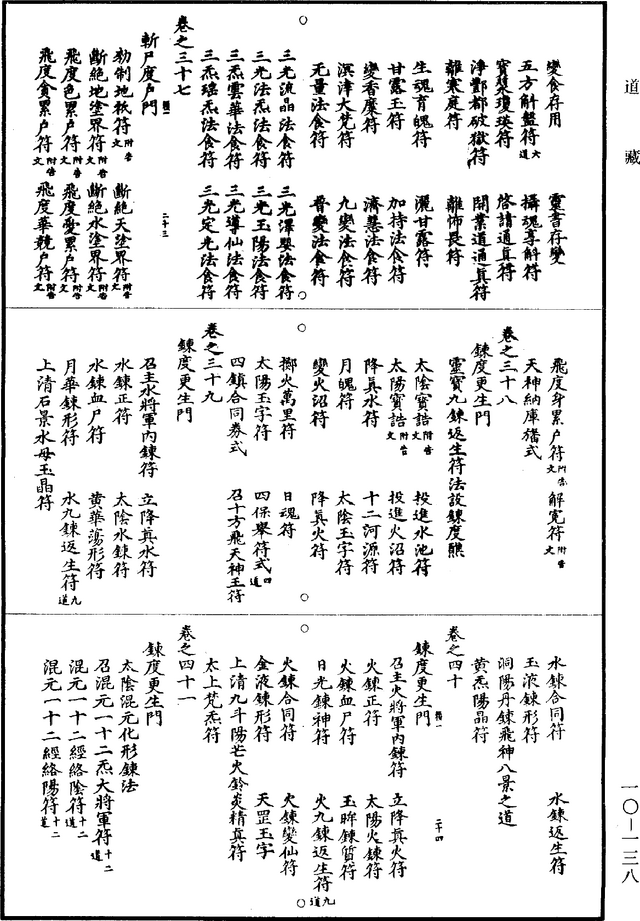 道藏
變食存用　靈書存變
五方斛盤符六道　攝魂享斛符
寶漿瓊瑛符　啓請通真符
淨酆都破獄符　開業道通真符
離寒庭符　離怖畏符
生魂育魄符　灑甘露符
甘露玉符　加持法食符
變香魔符　濟慧法食符
溟涬大梵符　九變法食符
无量法食符　普變法食符
三光流晶法食符　三光澤嬰法食符
三光法炁法食符　三光玉陽法食符
三炁雲華法食符　三光導仙法食符
三炁瑶炁法食符　三光定光法食符
卷之三十七
斬尸度户門
二十三
勑制地祇符附告文　斷絕天塗界符附告文
斷絕地塗界符附告文　斷絕水塗界符附告文
飛度色累户符附告文　飛度愛累户符附告文
飛度貪累户符附告文　飛度華競户符附告文
飛度身累户符附告文　解寃符附告文
天神納庫旛式
卷之三十八
鍊度更生門
靈寶九鍊返生符法設鍊度醮
太陰寶誥附告文　投進水池符
太陽寶誥附告文　投進火沼符
降真水符　十二河源符
月魄符　太陰玉字符
變火沼符　降真火符
擲火萬里符　日魂符
太陽玉字符　四保舉符式四道
四鎮合同券式　召十方飛天神王符
卷之三十九
鍊度更生門
召主水將軍內鍊符　立降真水符
水鍊正符　太陰水鍊符
水鍊血尸符　黃華蕩形符
月華鍊形符　水九鍊返生符九道
上清石景水母玉晶符
水鍊合同符　水鍊返生符
玉液鍊形符
洞陽丹鍊飛神八景之道
黃炁陽晶符
卷之四十
鍊度更生門
二十四
召主火將軍內鍊符　立降真火符
火鍊正符　太陽火鍊符
火鍊血尸符　玉眸鍊質符
日光鍊神符　火九鍊返生符九道
火鍊合同符　火鍊變仙符
金液鍊形符　天罡玉字
上清九斗陽芒火鈴炎精真符
太上梵炁符
卷之四十一
鍊度更生門
太陰混元化形鍊法
召混元一十二炁大將軍符十二道
混元一十二經絡陰符十二道
混元一十二經絡陽符十二道
一〇—一三八